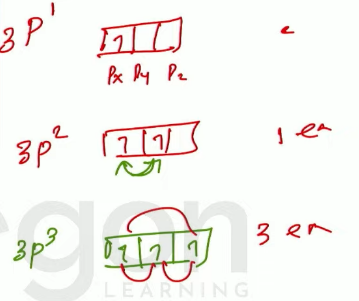 3p¹ 1
Px Py Pz
3p² 1 1 1 en
3p³ 1 1 1 3 en
LEARNING